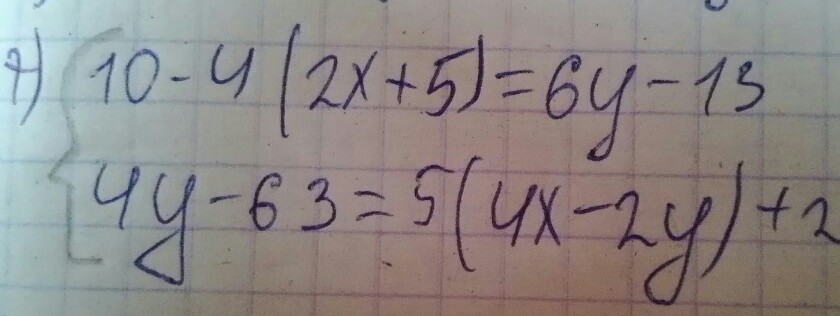 7) 10-4(2x+5)=6y-13
4y-63=5(4x-2y)+2